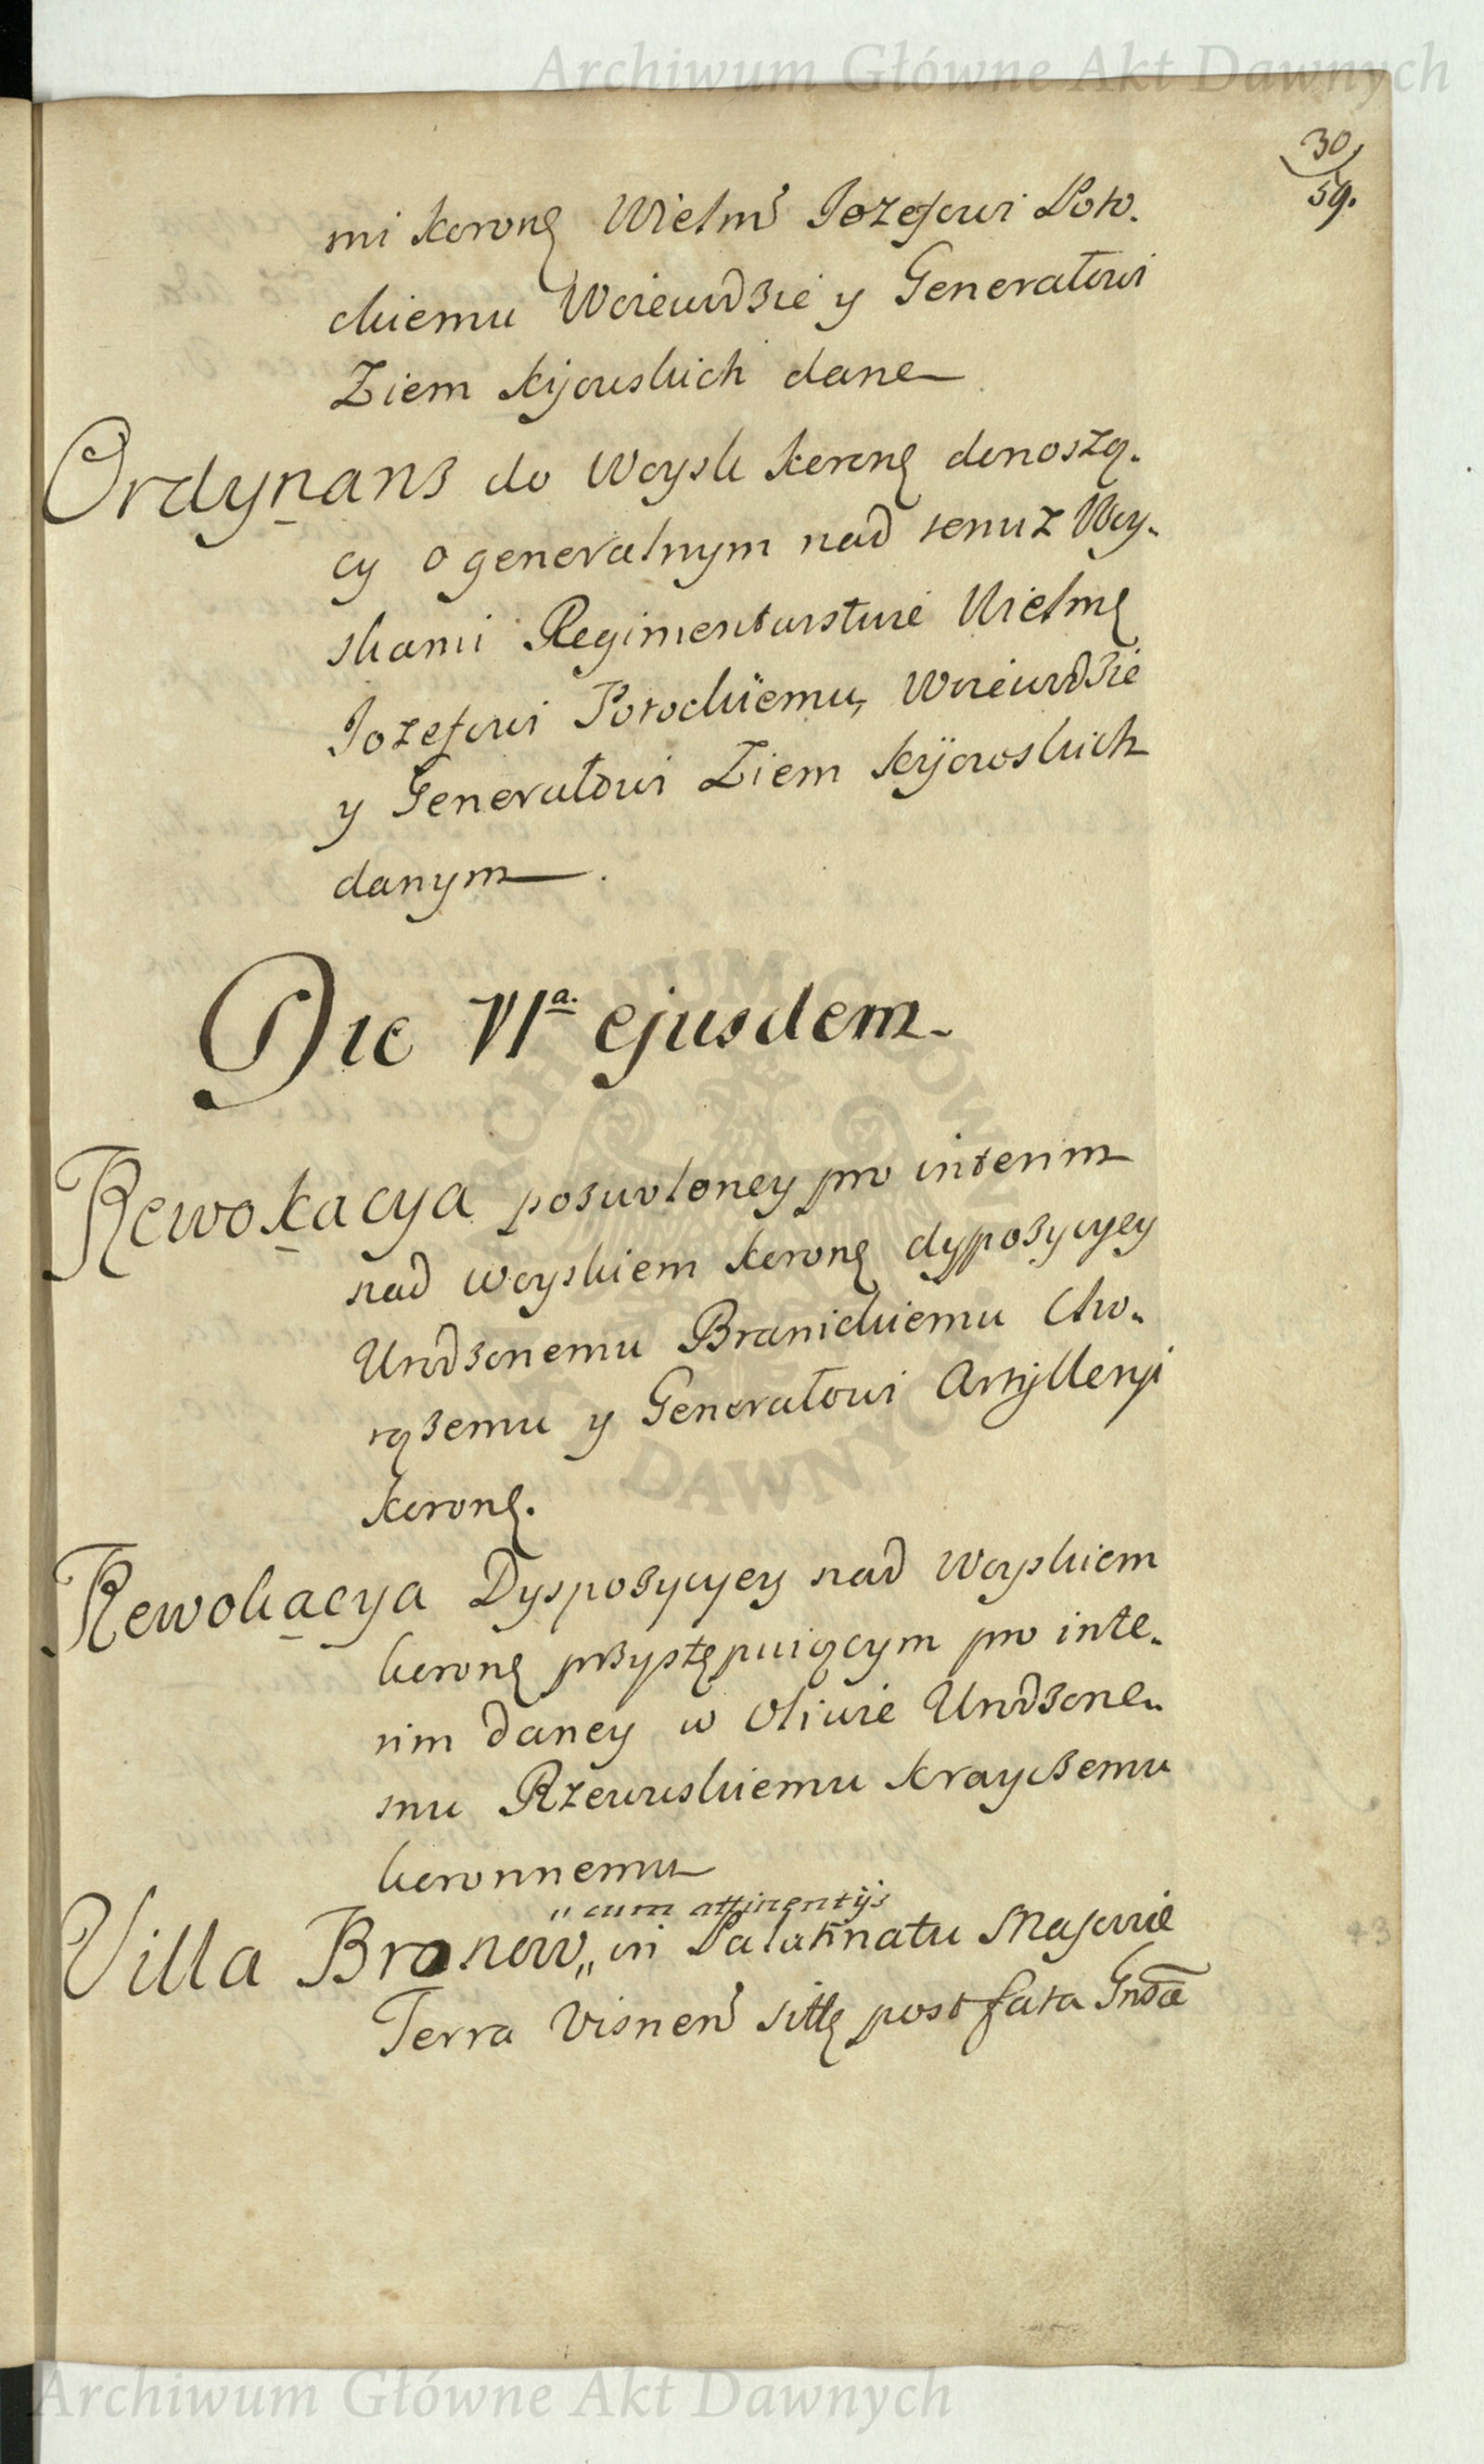 Archiwum Główne Akt Dawnych
30
59.
mi koronę Wielmˢ Jozefowi Poto-
ckiemu Woiewodzie y Generałowi
Ziem kijowskich dane
Ordynans do Woysk koronę donoszą-
cy o generalnym nad temuz Woy-
skami Regimentarstwie Wielmę
Jozefowi Potockiemu, Woiewodzie
y Generałowi Ziem kijowskich
danym.
Die VIᵃ. ejusdem.
Rewokacya pozwoloney pro interim
nad woyskiem koronę dyspozycyey
Urodzonemu Branickiemu Cho-
rązemu y Generałowi Artylleryi
koronę.
Rewokacya Dyspozycyey nad woyskiem
koronę przystępuiącym pro inte-
rim daney w Oliwie Urodzone-
mu Rzewuskiemu krayczemu
koronnemu
„cum attinentijs
Villa Bronow „in Palatinatu Masovie
Terra Visneń sitę post fata Gnsæ
Archiwum Główne Akt Dawnych